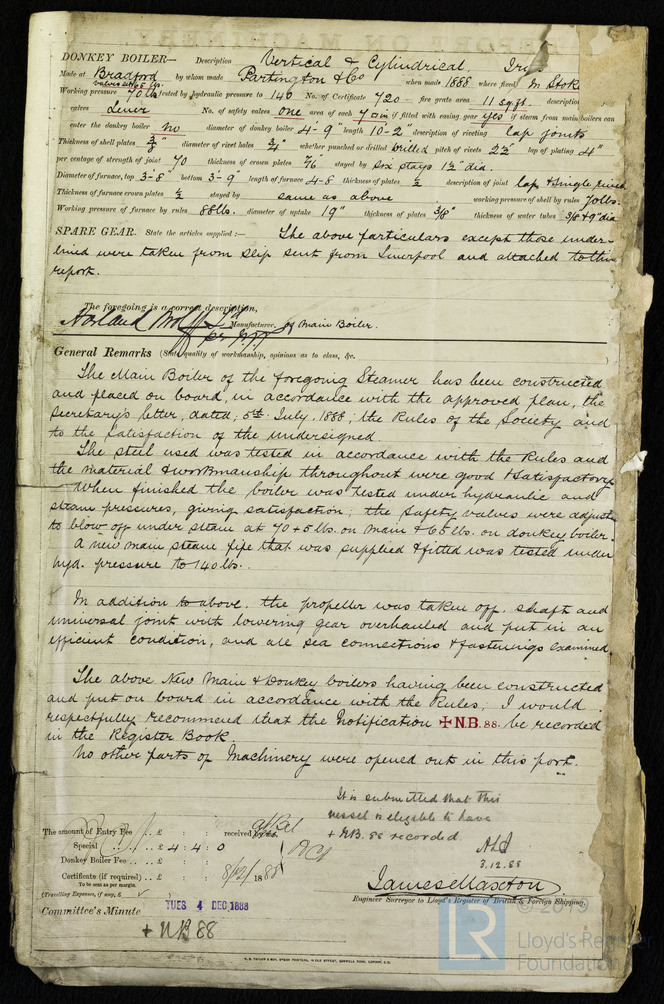 DONKEY BOILER— Description Vertical & Cylindrical. Iron
Made at Bradford by whom made Partington & Co when made 1888 where fixed In Stoke
valves at 65 lbs.
Working pressure 70 lbs tested by hydraulic pressure to 140 No. of Certificate 720 fire grate area 11 sq. ft. description
valves Lever No. of safety valves one area of each 7 o in if fitted with easing gear yes if steam from main boilers can
enter the donkey boiler No diameter of donkey boiler 4'-9" length 10-2" description of riveting lap joints
Thickness of shell plates 3/8" diameter of rivet holes 3/4" whether punched or drilled drilled pitch of rivets 2 1/2" lap of plating 4"
per centage of strength of joint 70 thickness of crown plates 7/16" stayed by six stays 1 1/2" dia.
Diameter of furnace, top 3-8" bottom 3-9" length of furnace 4-8 thickness of plates 1/2 description of joint lap & single rived
Thickness of furnace crown plates 1/2 stayed by same as above working pressure of shell by rules 70 lbs.
Working pressure of furnace by rules 88 lbs. diameter of uptake 19" thickness of plates 3/8" thickness of water tubes 3/8 & 9" dia
SPARE GEAR. State the articles supplied:— The above particulars except those under-
lined were taken from slip sent from Liverpool and attached to this
report.
The foregoing is a correct description,
Harland Wolff Ld Manufacturer. of Main Boiler.
per
General Remarks (State quality of workmanship, opinions as to class, &c.
The Main Boiler of the foregoing Steamer has been constructed
and placed on board, in accordance with the approved plan, the
Secretary's letter, dated, 5th July, 1888; the Rules of the Society and
to the satisfaction of the undersigned.
The steel used was tested in accordance with the Rules and
the material & workmanship throughout were good & satisfactory
When finished the boiler was tested under hydraulic and
steam pressures, giving satisfaction; the safety valves were adjuste
to blow off under steam at 70+5 lbs. on main & 65 lbs. on donkey boiler.
A new main steam pipe that was supplied & fitted was tested under
hyd. pressure to 140 lbs.
In addition to above. the propeller was taken off. shaft and
universal joint with lowering gear overhauled and put in an
efficient condition, and all sea connections & fastenings examined
The above New Main & Donkey boilers having been constructed
and put on board in accordance with the Rules; I would
respectfully recommend that the Notification ✠ N.B. 88. be recorded
in the Register Book.
No other parts of Machinery were opened out in this port.
It is submitted that this
vessel is eligible to have
+ NB 88 recorded
3.12.88
The amount of Entry Fee .. £ : : received by me,
Special .. £ 4 : 4 : 0
Donkey Boiler Fee .. £ : :
Certificate (if required) .. £ : : 8/12/ 1888
To be sent as per margin.
(Travelling Expenses, if any, £
James Maxton
Engineer Surveyor to Lloyd's Register of British & Foreign Shipping.
Committee's Minute TUES 4 DEC 1888
+ NB 88
© 2019
LR
Lloyd's Register
Foundation